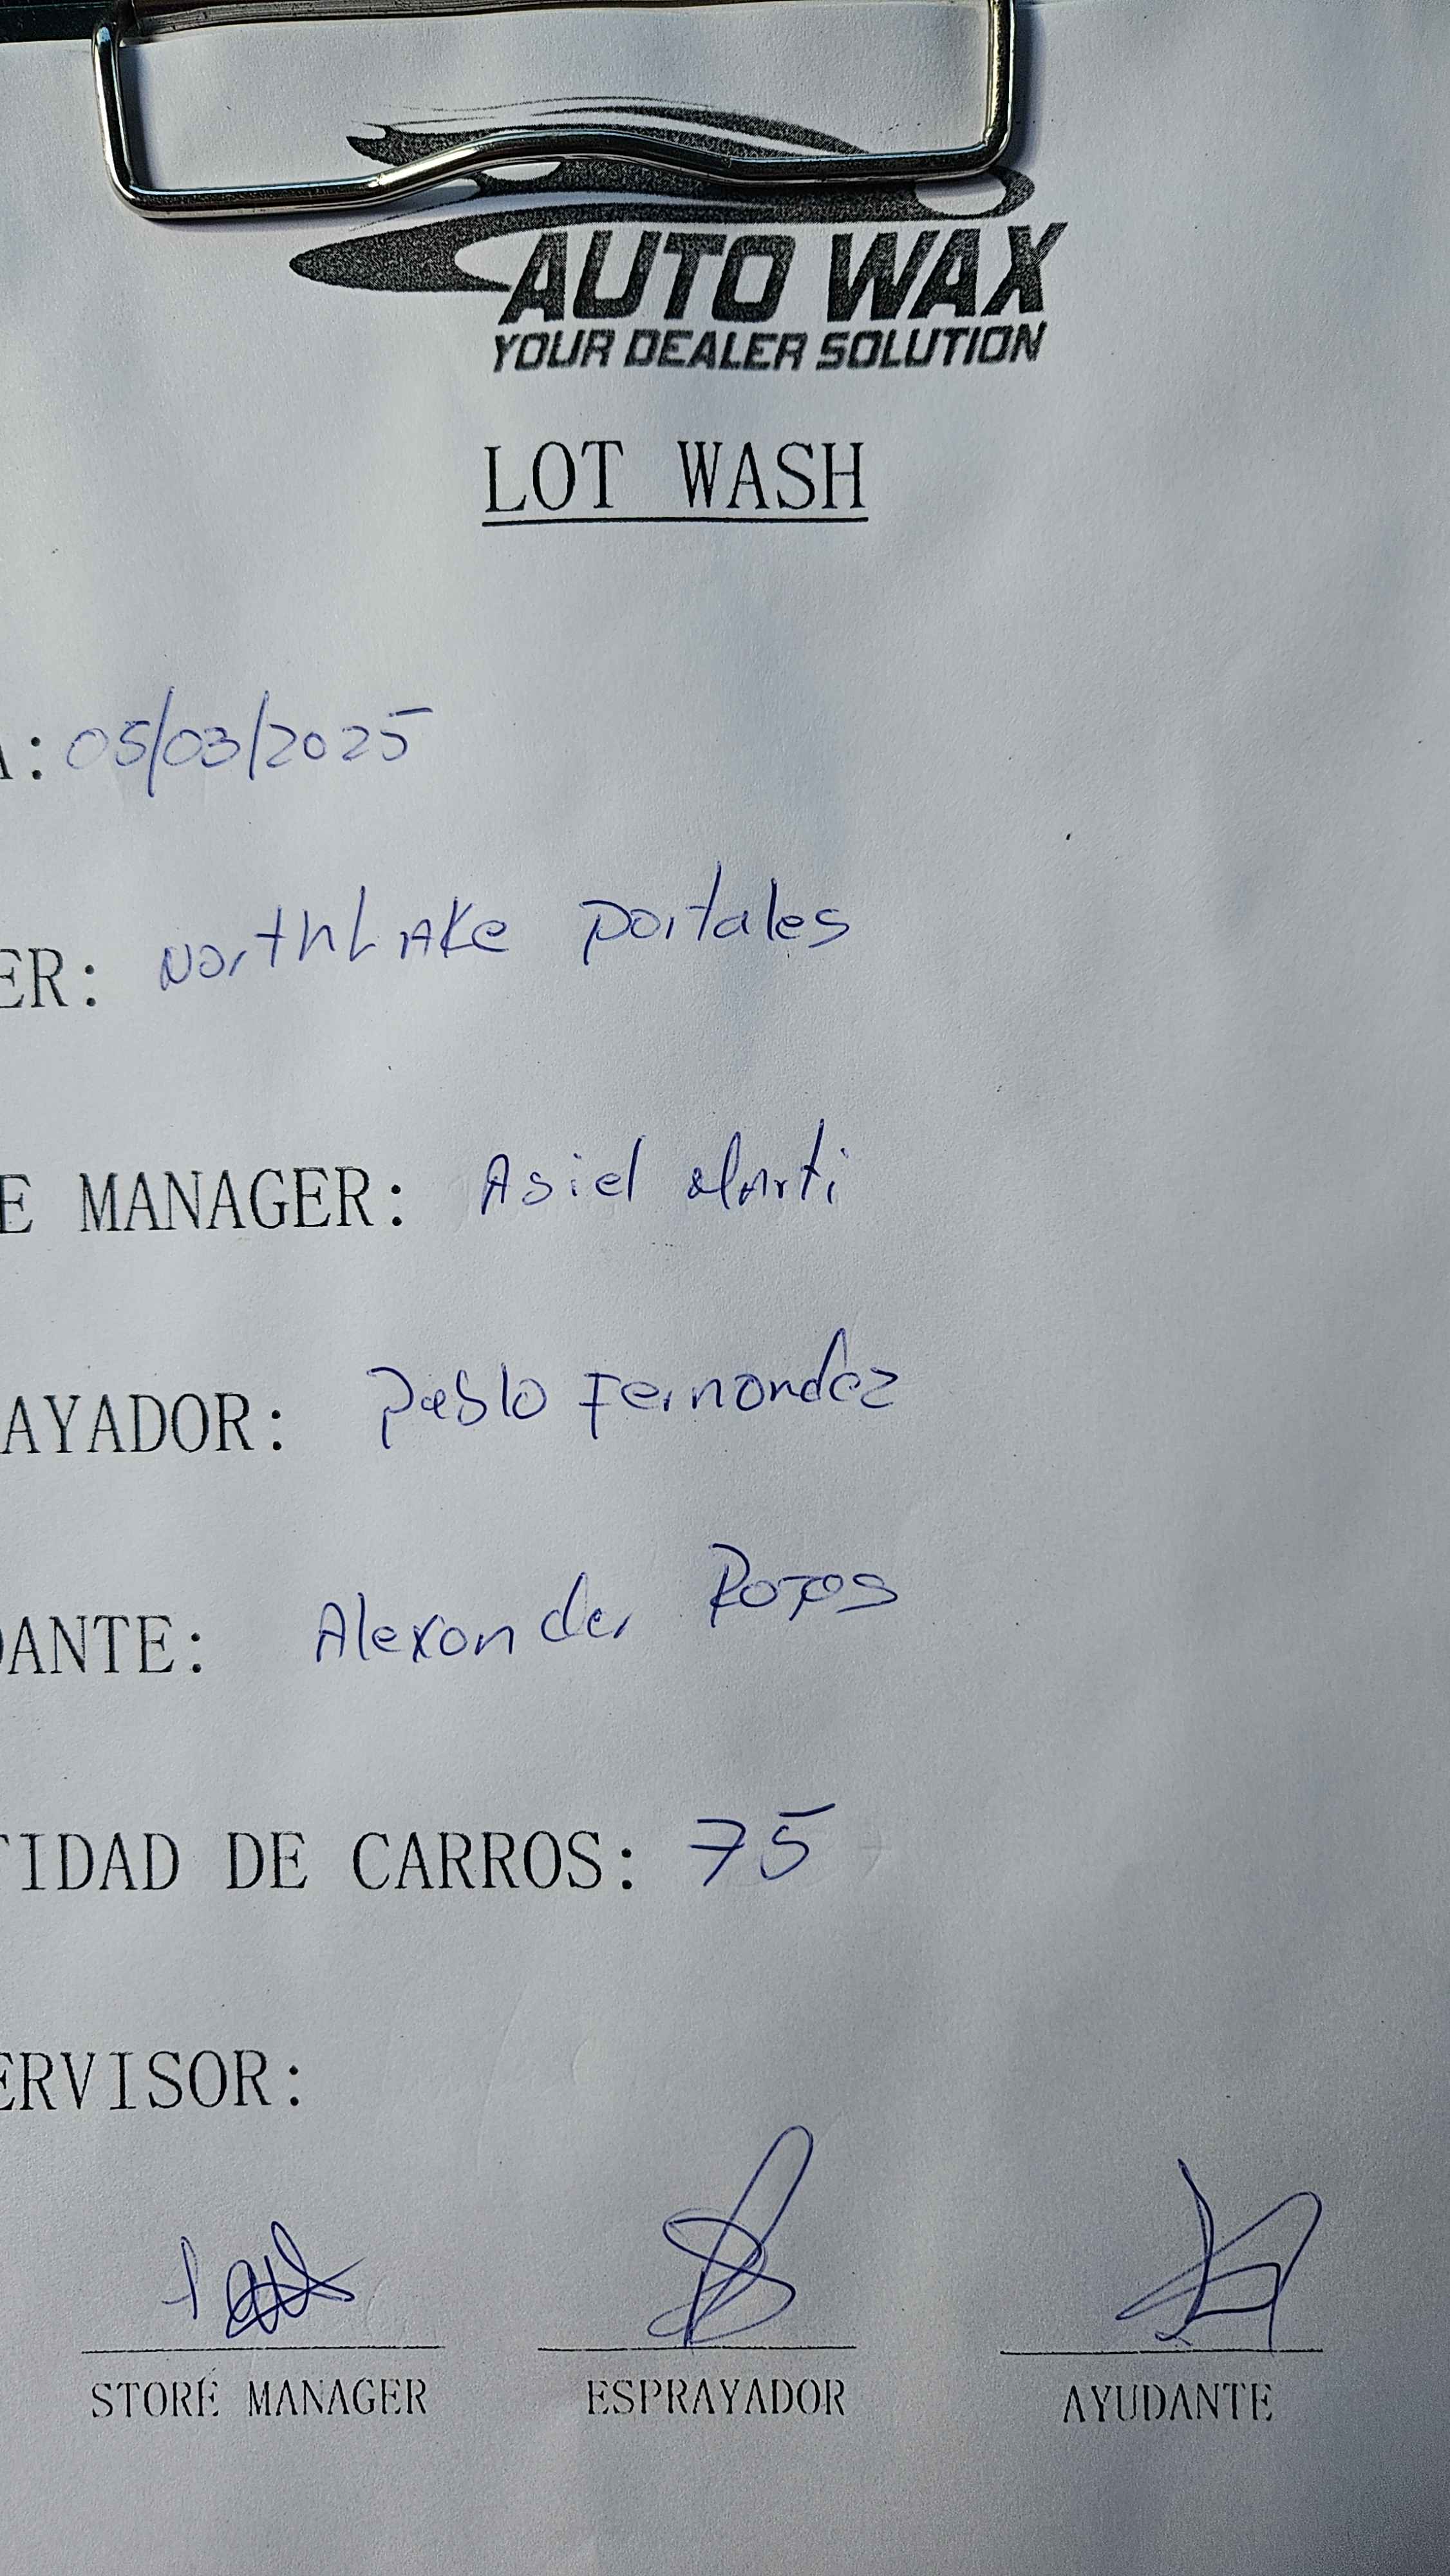 AUTO WAX
YOUR DEALER SOLUTION
LOT WASH
A: 05/03/2025
ER: NorthLAKe portales
E MANAGER: Asiel Marti
AYADOR: Pablo Fernandez
DANTE: Alexander Rojas
TIDAD DE CARROS: 75
ERVISOR:
STORE MANAGER ESPRAYADOR AYUDANTE